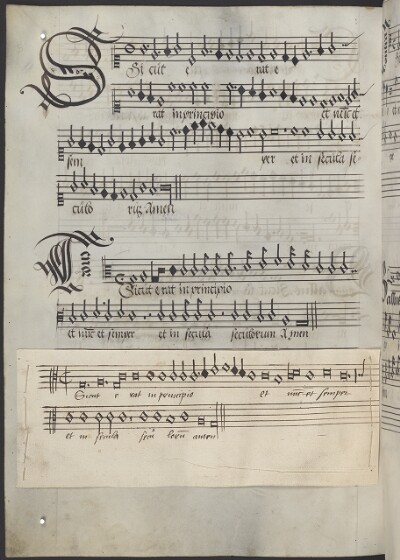 Si cut e rat e
rat in principio et nūc et
sem per et in secula se
culo rūz Amen
Tenor
Sicut erat in principio
et nūc et semper et in secula seculorum Amen
Sicut e rat in principio et nūc et semper
et in secula amen